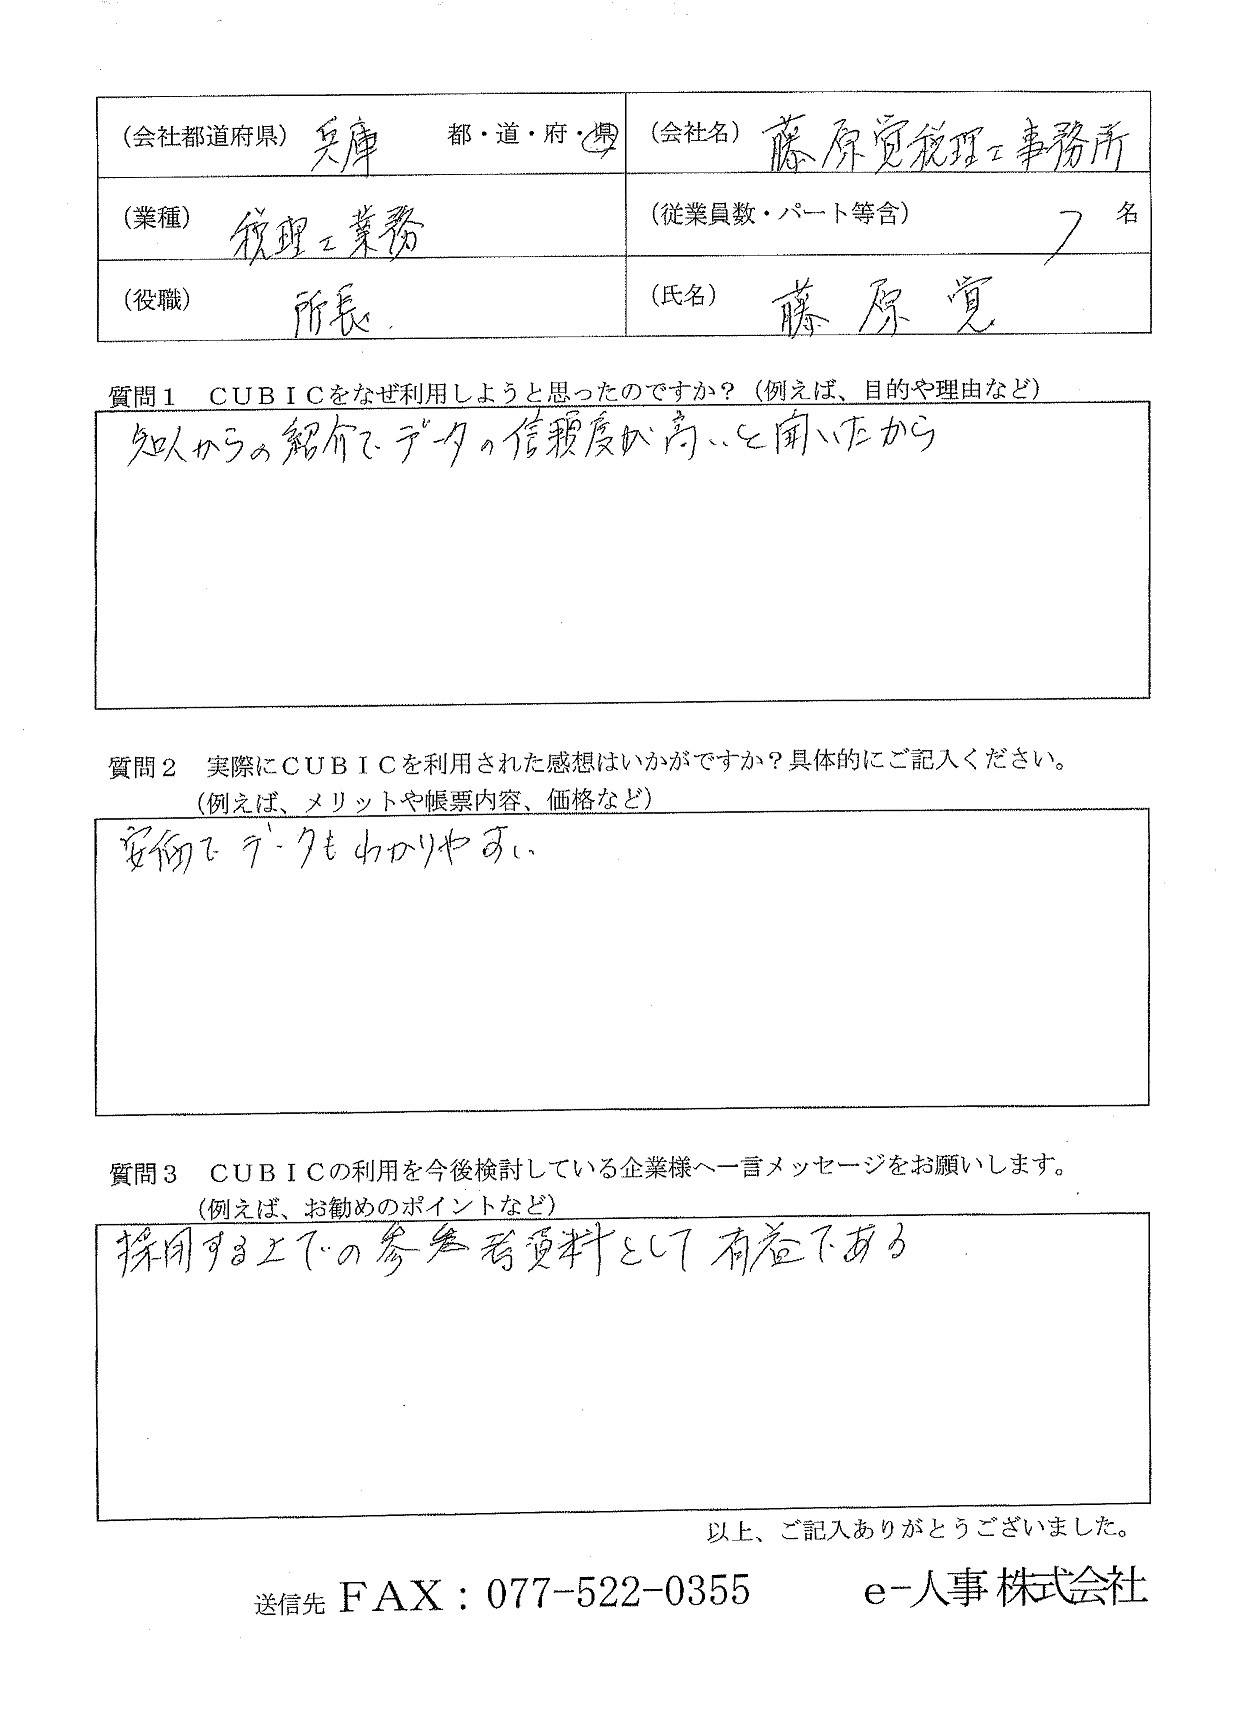 （会社都道府県） 兵庫 都・道・府・県 （会社名） 藤原覚税理士事務所
（業種） 税理士業務 （従業員数・パート等含） 7 名
（役職） 所長. （氏名） 藤原 覚
質問１　ＣＵＢＩＣをなぜ利用しようと思ったのですか？（例えば、目的や理由など）
知人からの紹介で データの信頼度が高いと聞いたから
質問２　実際にＣＵＢＩＣを利用された感想はいかがですか？具体的にご記入ください。
（例えば、メリットや帳票内容、価格など）
安価で データもわかりやすい
質問３　ＣＵＢＩＣの利用を今後検討している企業様へ一言メッセージをお願いします。
（例えば、お勧めのポイントなど）
採用する上での参考資料として有益である
以上、ご記入ありがとうございました。
送信先 ＦＡＸ：077-522-0355 e-人事 株式会社